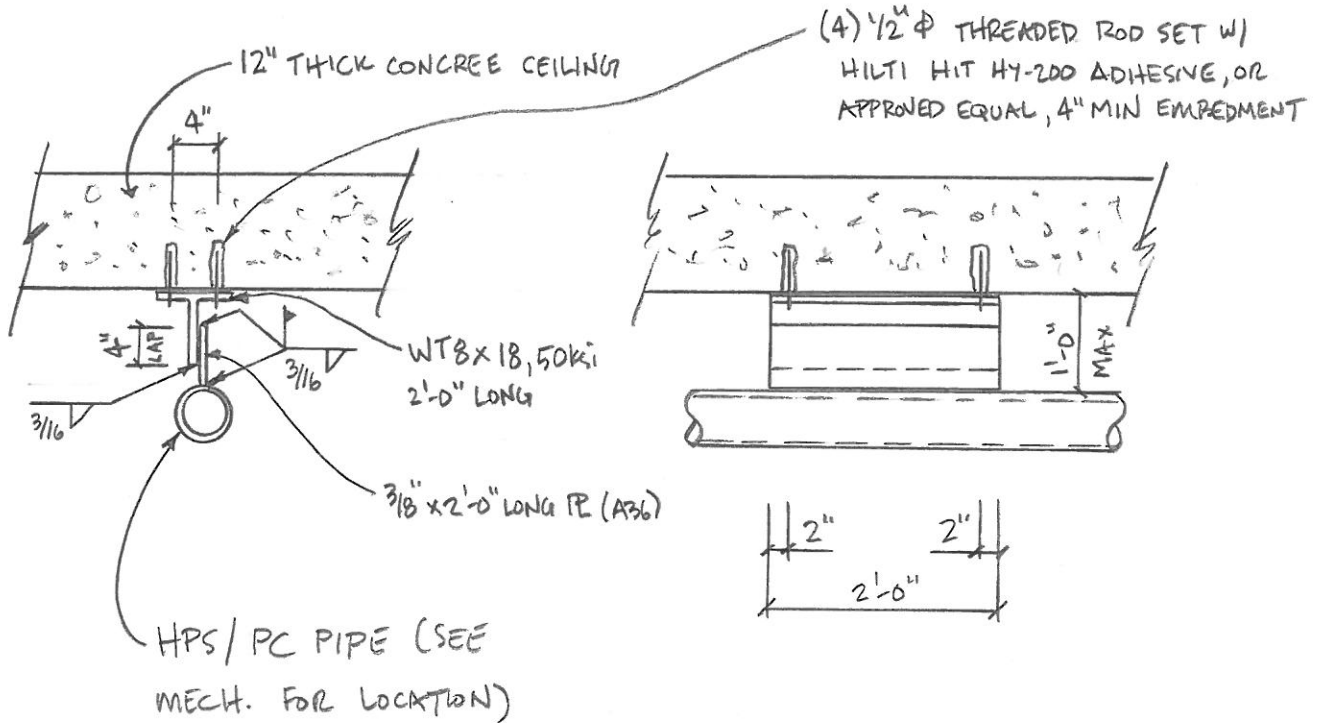 12" THICK CONCREE CEILING
(4) 1/2" Φ THREADED ROD SET W/
HILTI HIT HY-200 ADHESIVE, OR
APPROVED EQUAL, 4" MIN EMBEDMENT
4"
4"
LAP
3/16
3/16
WT8×18, 50ksi
2'-0" LONG
1'-0"
MAX
3/8" x 2'-0" LONG PL (A36)
2"
2"
2'-0"
HPS/PC PIPE (SEE
MECH. FOR LOCATION)